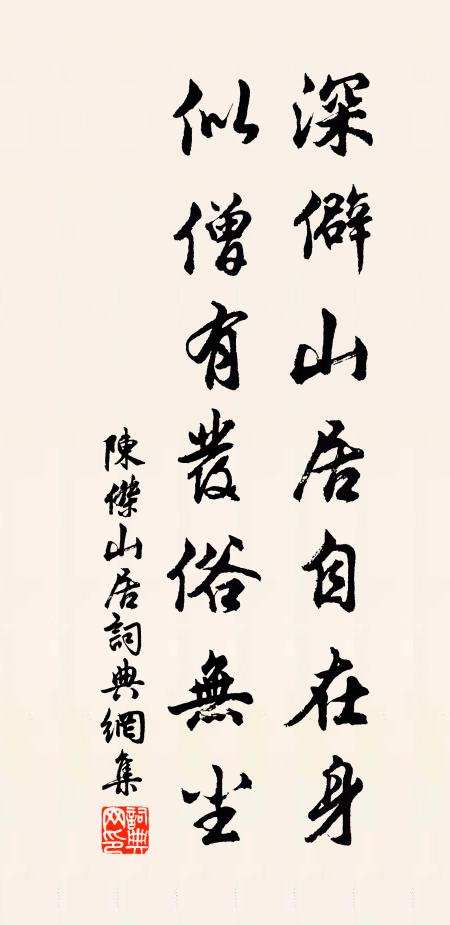 深僻山居自在身
似僧有發俗無尘
陳傑山居詞典網集
詞典网印